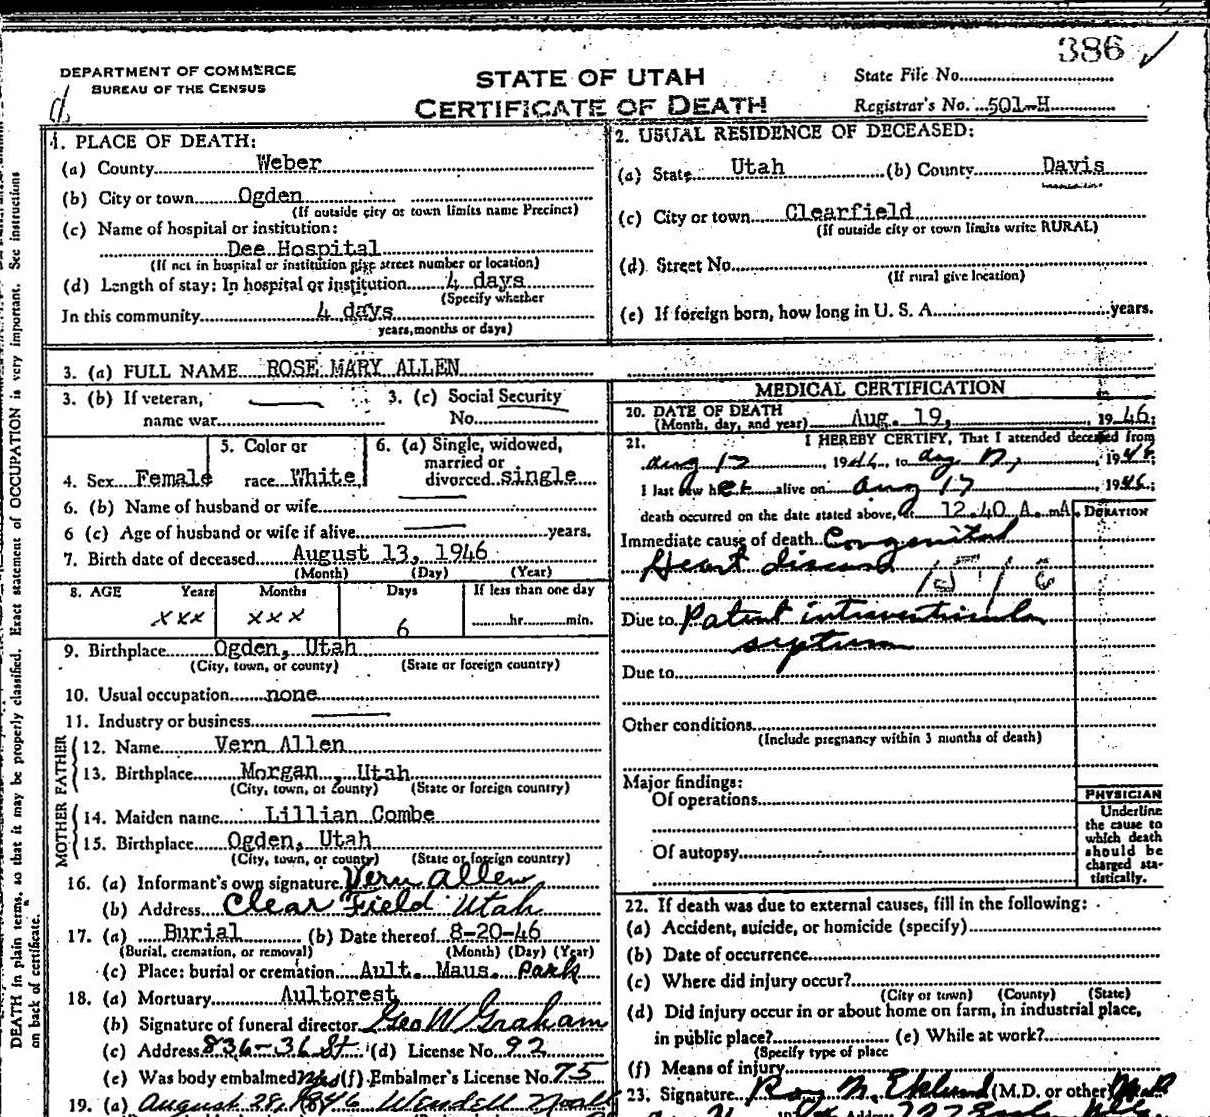 386 ✓
DEPARTMENT OF COMMERCE
BUREAU OF THE CENSUS
STATE OF UTAH
CERTIFICATE OF DEATH
State File No.
Registrar's No. 501-H
1. PLACE OF DEATH:
(a) County Weber
(b) City or town Ogden
(If outside city or town limits name Precinct)
(c) Name of hospital or institution:
Dee Hospital
(If not in hospital or institution give street number or location)
(d) Length of stay: In hospital or institution 4 days
(Specify whether
In this community 4 days
years, months or days)
2. USUAL RESIDENCE OF DECEASED:
(a) State Utah (b) County Davis
(c) City or town Clearfield
(If outside city or town limits write RURAL)
(d) Street No.
(If rural give location)
(e) If foreign born, how long in U. S. A. years.
3. (a) FULL NAME ROSE MARY ALLEN
3. (b) If veteran, 3. (c) Social Security
name war No.
4. Sex Female 5. Color or race White 6. (a) Single, widowed, married or divorced single
6. (b) Name of husband or wife
6 (c) Age of husband or wife if alive years.
7. Birth date of deceased August 13, 1946
(Month) (Day) (Year)
8. AGE Years Months Days If less than one day
xxx xxx 6 hr. min.
9. Birthplace Ogden, Utah
(City, town, or county) (State or foreign country)
10. Usual occupation none
11. Industry or business
FATHER
12. Name Vern Allen
13. Birthplace Morgan, Utah
(City, town, or county) (State or foreign country)
MOTHER
14. Maiden name Lillian Combe
15. Birthplace Ogden, Utah
(City, town, or county) (State or foreign country)
16. (a) Informant's own signature Vern Allen
(b) Address Clear Field Utah
17. (a) Burial (b) Date thereof 8-20-46
(Burial, cremation, or removal) (Month) (Day) (Year)
(c) Place: burial or cremation Ault. Maus. Park
18. (a) Mortuary Aultorest
(b) Signature of funeral director Geo W Graham
(c) Address 836-36 St (d) License No. 92
(e) Was body embalmed (f) Embalmer's License No. 75
19. (a) August 28, 1946 Wendell
MEDICAL CERTIFICATION
20. DATE OF DEATH
(Month, day, and year) Aug. 19, 1946;
21. I HEREBY CERTIFY, That I attended deceased from
Aug 17, 1946, to Aug , 19
I last saw her alive on Aug 17 1946;
death occurred on the date stated above, at 12.40 A. m. DURATION
Immediate cause of death Congenital
Heart disease
Due to Patent interventricular
septum
Due to
Other conditions
(Include pregnancy within 3 months of death)
Major findings:
Of operations
Of autopsy
PHYSICIAN
Underline
the cause to
which death
should be
charged sta-
tistically.
22. If death was due to external causes, fill in the following:
(a) Accident, suicide, or homicide (specify)
(b) Date of occurrence
(c) Where did injury occur?
(City or town) (County) (State)
(d) Did injury occur in or about home on farm, in industrial place,
in public place? (e) While at work?
(Specify type of place
(f) Means of injury
23. Signature Roy N. Eklund (M.D. or other)
DEATH in plain terms, so that it may be properly classified. Exact statement of OCCUPATION is very important. See instructions
on back of certificate.